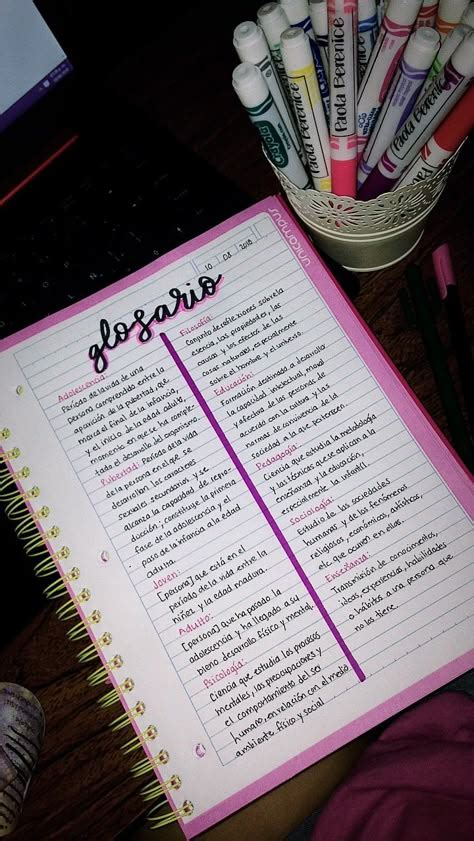 unicampus
10 08 2018
glosario
Adolescencia:
Período de la vida de una
persona comprendido entre la
aparición de la pubertad, que
marca el final de la infancia,
y el inicio de la edad adulta,
momento en que se ha comple-
tado el desarrollo del organismo.
Pubertad: Período de la vida
de la persona en el que se
desarrollan los caracteres
sexuales secundarios y se
alcanza la capacidad de repro-
ducción; constituye la primera
fase de la adolescencia y el
paso de la infancia a la edad
adulta.
Joven:
[persona] que está en el
período de la vida entre la
niñez y la edad madura.
Adulto:
[persona] que ha pasado la
adolescencia y ha llegado a su
pleno desarrollo físico y mental.
Psicología:
Ciencia que estudia los procesos
mentales, las preocupaciones y
el comportamiento del ser
humano, en relación con el medio
ambiente físico y social
Filosofía:
Conjunto de reflexiones sobre la
esencia, las propiedades, las
causas y los efectos de las
cosas naturales, especialmente
sobre el hombre y el universo.
Educación:
Formación destinada a desarrollar
la capacidad intelectual, moral
y afectiva de las personas de
acuerdo con la cultura y las
normas de convivencia de la
sociedad a la que pertenecen.
Pedagogía:
Ciencia que estudia la metodología
y las técnicas que se aplican a la
enseñanza y la educación,
especialmente la infantil.
Sociología:
Estudio de las sociedades
humanas y de los fenómenos
religiosos, económicos, artísticos,
etc. que ocurren en ellas.
Enseñanza:
Transmisión de conocimientos,
ideas, experiencias, habilidades
o hábitos a una persona que
no los tiene.
Crayola
Paola Berenice
Paola Berenice
Paola Berenice